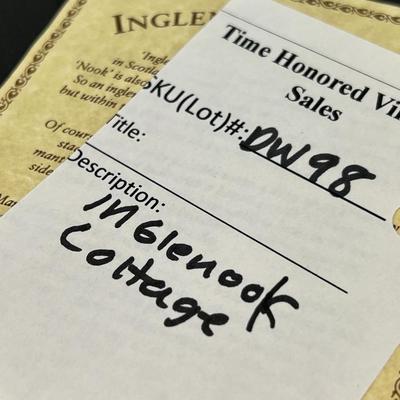 INGLEN
'Ingle
in Scotl
'Nook' is also
So an ingle
but within t
Of cours
sta
mant
side
Mar
Time Honored Vi
Sales
KU(Lot)#: DW98
itle:
Description:
INGlenook
Cottage